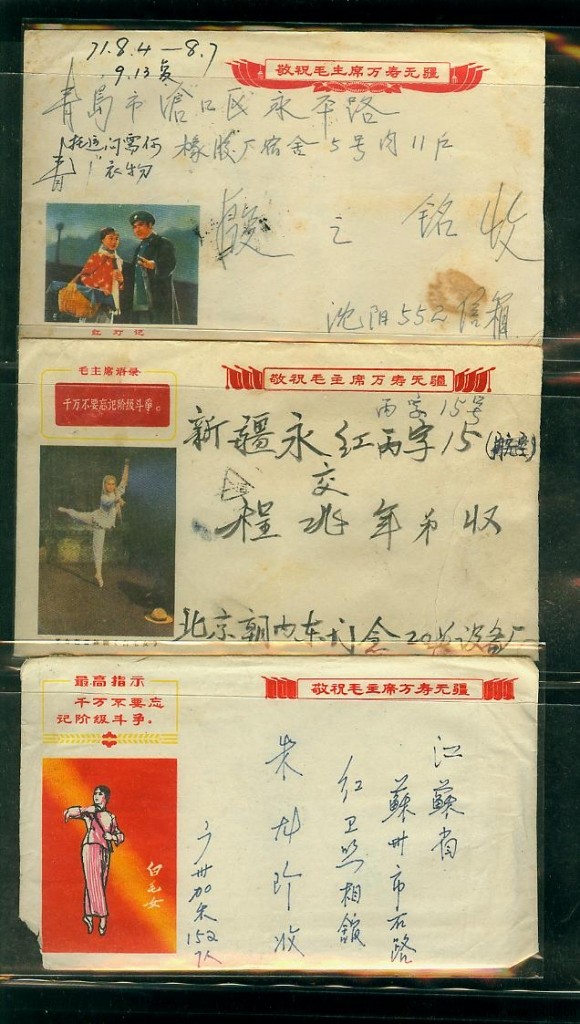 71.8.4—8.7
9.13复
敬祝毛主席万寿无疆
青岛市滄口区永平路
橡胶厂宿舍5号内11户
托运问需何
衣物
之铭收
红灯记
沈阳552信箱
毛主席语录
千万不要忘记阶级斗争。
敬祝毛主席万寿无疆
丙字15号
新疆永红丙字15
交
程兆年弟收
北京朝内东
最高指示
千万不要忘
记阶级斗争。
敬祝毛主席万寿无疆
江蘇省
蘇州市石路
红卫照相館
朱
珍收
152
白毛女